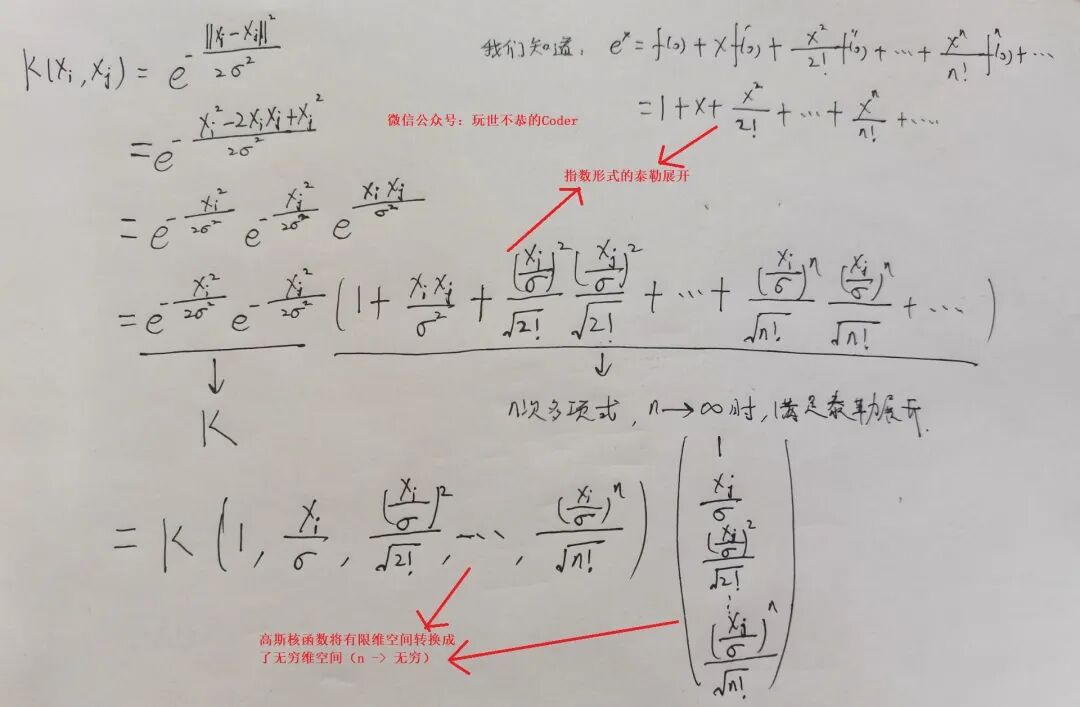 K(xᵢ, xⱼ) = e^{-‖xᵢ - xⱼ‖²/(2σ²)}
我们知道: eˣ = f(0) + x f'(0) + x²/2! f''(0) + ⋯ + xⁿ/n! fⁿ(0) + ⋯
= 1 + x + x²/2! + ⋯ + xⁿ/n! + ⋯
= e^{-(xᵢ² - 2xᵢxⱼ + xⱼ²)/(2σ²)}
微信公众号：玩世不恭的Coder
指数形式的泰勒展开
= e^{-xᵢ²/(2σ²)} e^{-xⱼ²/(2σ²)} e^{xᵢxⱼ/σ²}
= e^{-xᵢ²/(2σ²)} e^{-xⱼ²/(2σ²)} (1 + xᵢxⱼ/σ² + (xᵢ/σ)²/√2! (xⱼ/σ)²/√2! + ⋯ + (xᵢ/σ)ⁿ/√n! (xⱼ/σ)ⁿ/√n! + ⋯)
K
n次多项式, n→∞时, 满足泰勒展开.
= K (1, xᵢ/σ, (xᵢ/σ)²/√2!, ⋯, (xᵢ/σ)ⁿ/√n!)
1
xⱼ/σ
(xⱼ/σ)²/√2!
⋮
(xⱼ/σ)ⁿ/√n!
高斯核函数将有限维空间转换成
了无穷维空间（n -> 无穷）